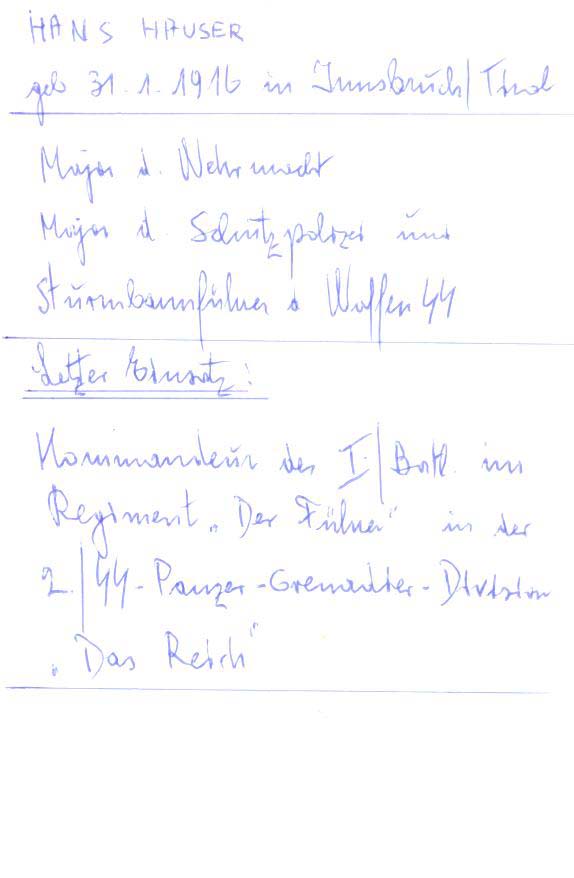 HANS HAUSER
geb 31. 1. 1916 in Innsbruck/Tirol
Major d. Wehrmacht
Major d. Schutzpolizei und
Sturmbannführer d Waffen SS
Letzter Einsatz:
Kommandeur des I./Batl. im
Regiment „Der Führer" in der
2./SS-Panzer-Grenadier-Division
„Das Reich"